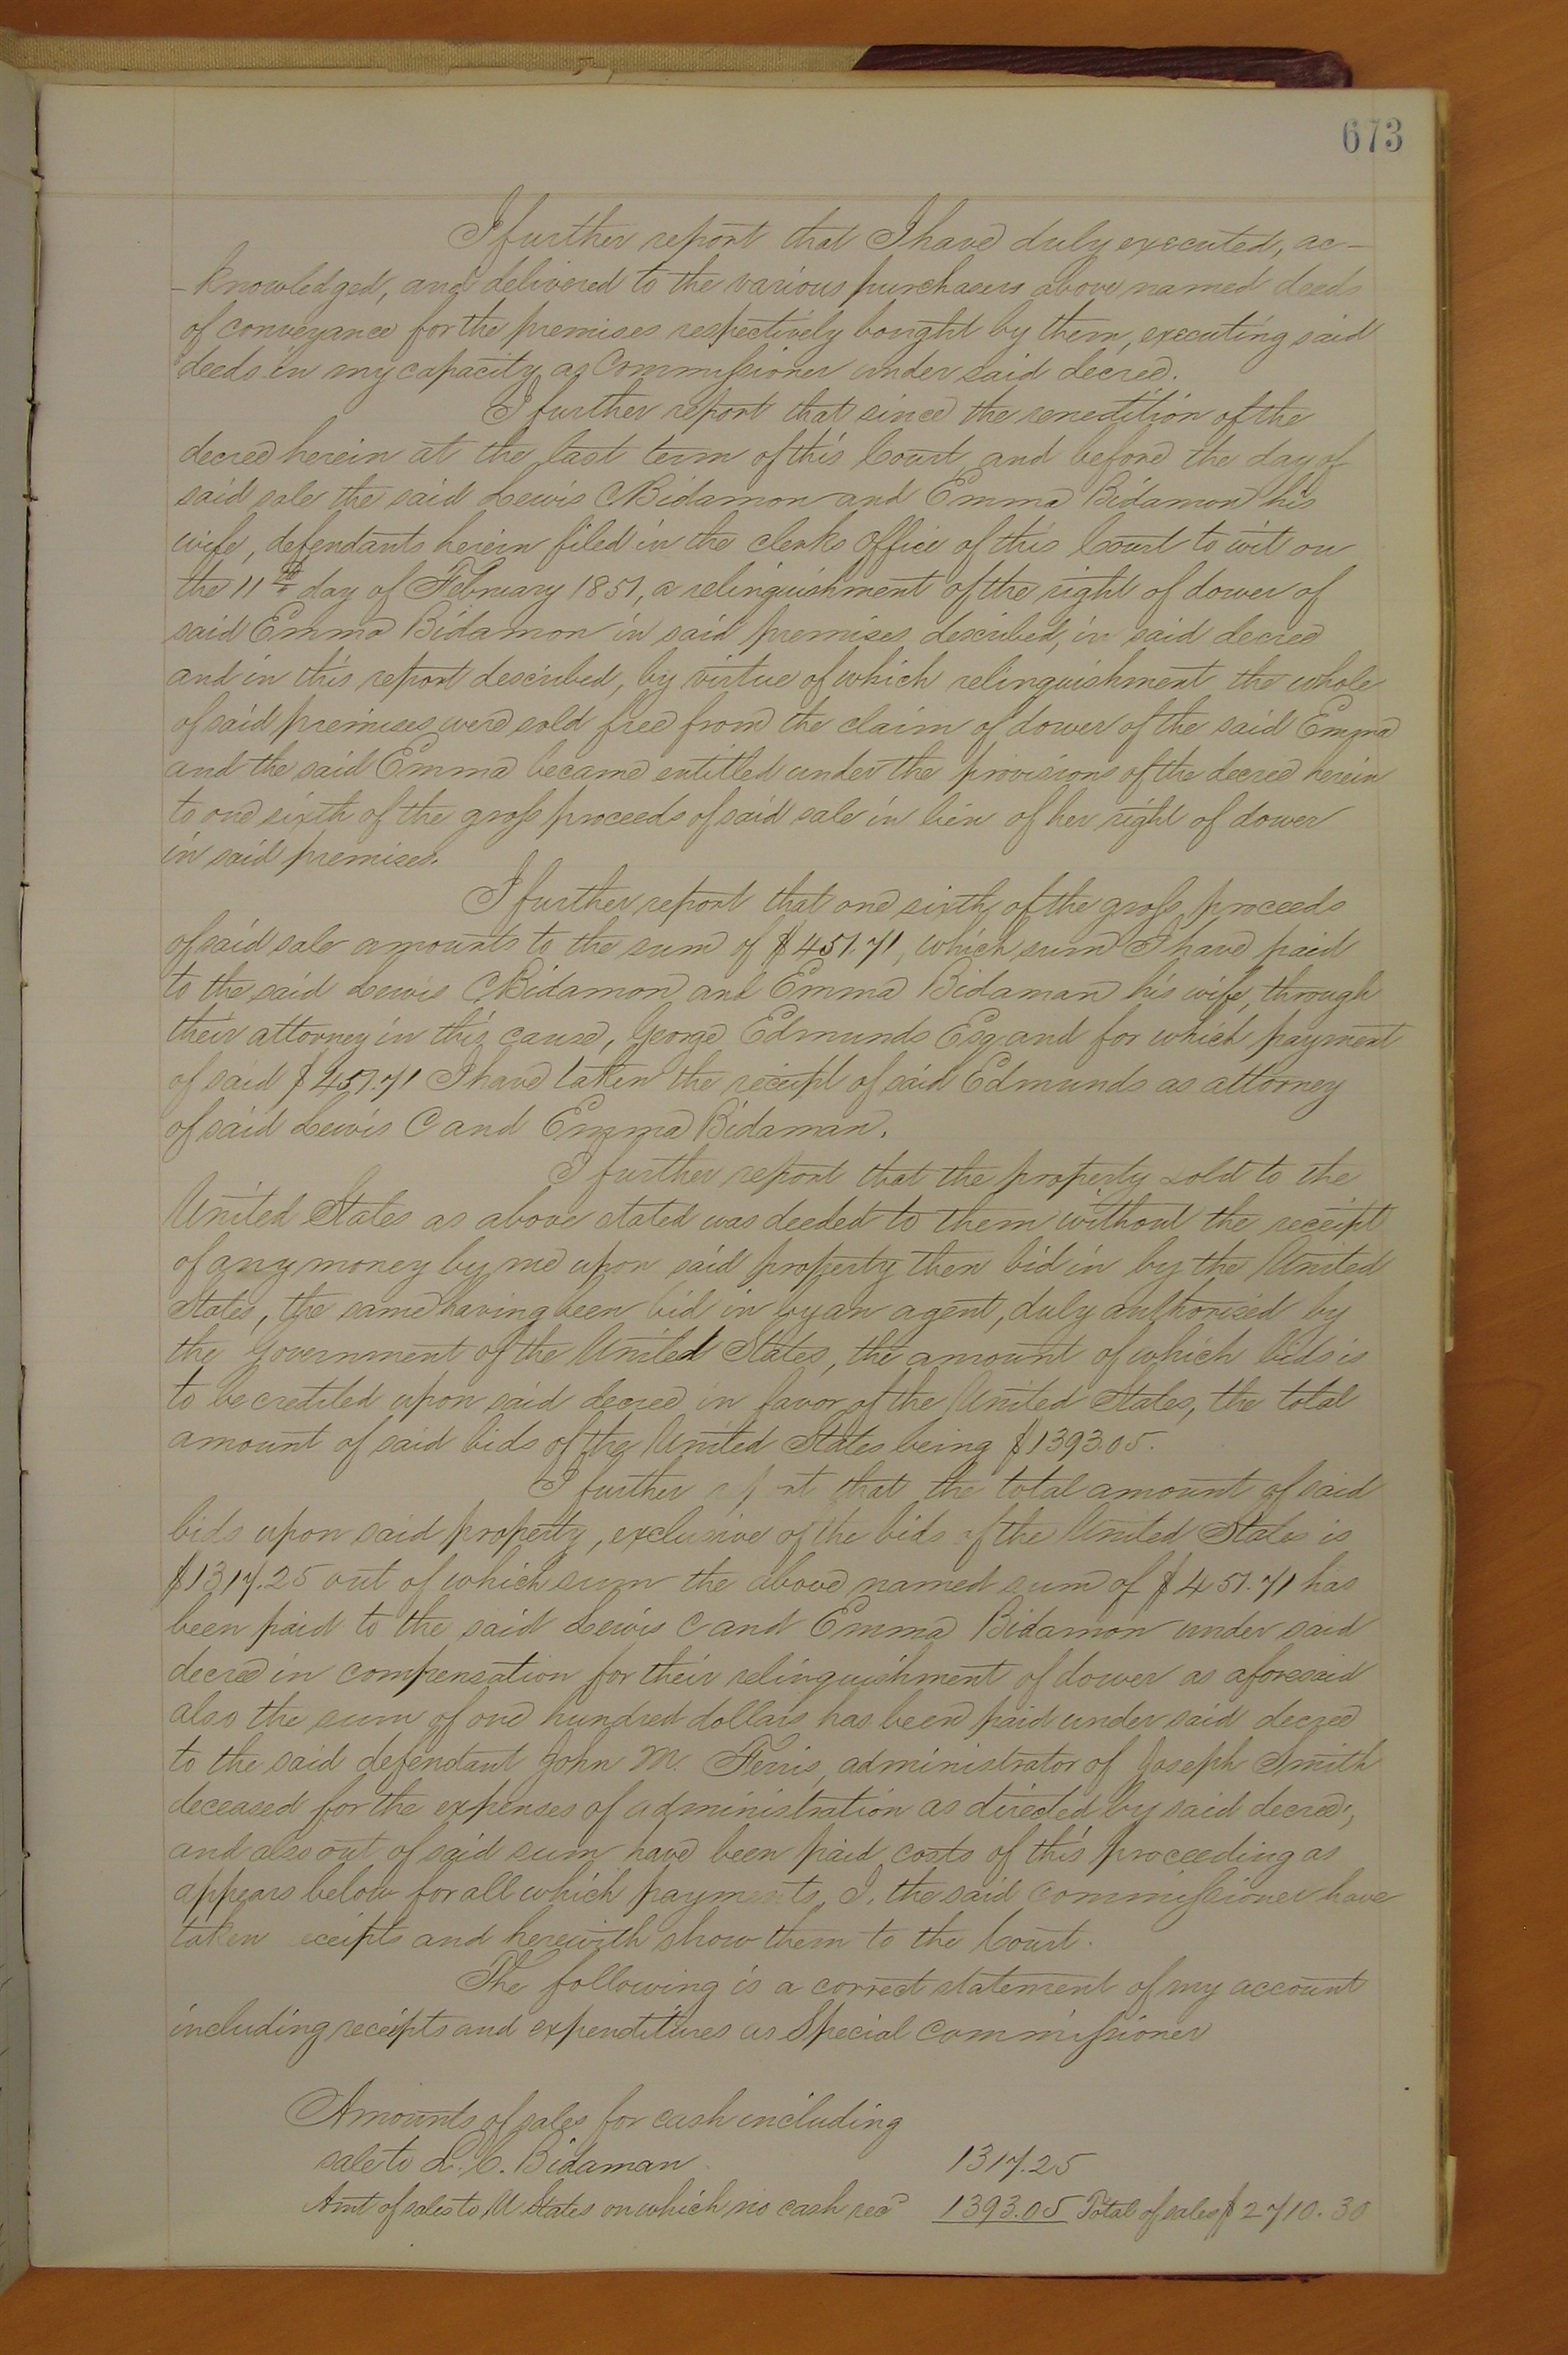 673
I further report that I have duly executed, ac-
-knowledged, and delivered to the various purchasers above named deeds
of conveyance for the premises respectively bought by them, executing said
deeds in my capacity as Commissioner under said decree.
I further report that since the renedition of the
decree herein at the last term of this Court and before the day of
said sale the said Lewis C Bidamon and Emma Bidamon his
wife, defendants herein filed in the clerks office of this Court to wit on
the 11th day of February 1851, a relinquishment of the right of dower of
said Emma Bidamon in said premises described, in said decree
and in this report described, by virtue of which relinquishment the whole
of said premises were sold free from the claim of dower of the said Emma
and the said Emma became entitled under the provisions of the decree herein
to one sixth of the gross proceeds of said sale in lieu of her right of dower
in said premises.
I further report that one sixth of the gross proceeds
of said sale amounts to the sum of $451.71, which sum I have paid
to the said Lewis C Bidamon and Emma Bidaman his wife, through
their attorney in this cause, George Edmunds Esq and for which payment
of said $451.71 I have taken the receipt of said Edmunds as attorney
of said Lewis C and Emma Bidaman.
I further report that the property sold to the
United States as above stated was deeded to them without the receipt
of any money by me upon said property then bid in by the United
States, the same having been bid in by an agent, duly authorised by
the Government of the United States, the amount of which bids is
to be credited upon said decree in favor of the United States, the total
amount of said bids of the United States being $1393.05.
I further report that the total amount of said
bids upon said property, exclusive of the bids of the United States is
$1317.25 out of which sum the above named sum of $451.71 has
been paid to the said Lewis C and Emma Bidamon under said
decree in compensation for their relinquishment of dower as aforesaid
also the sum of one hundred dollars has been paid under said decree
to the said defendant John M. Ferris, administrator of Joseph Smith
deceased for the expenses of administration as directed by said decree,
and also out of said sum have been paid costs of this proceeding as
appears below for all which payments, I, the said Commissioner have
taken receipts and herewith show them to the Court.
The following is a correct statement of my account
including receipts and expenditures as Special Commissioner
Amounts of sales for cash including
sale to L. C. Bidaman 1317.25
Amt of sales to U States on which no cash recd 1393.05 Total of sales $2710.30